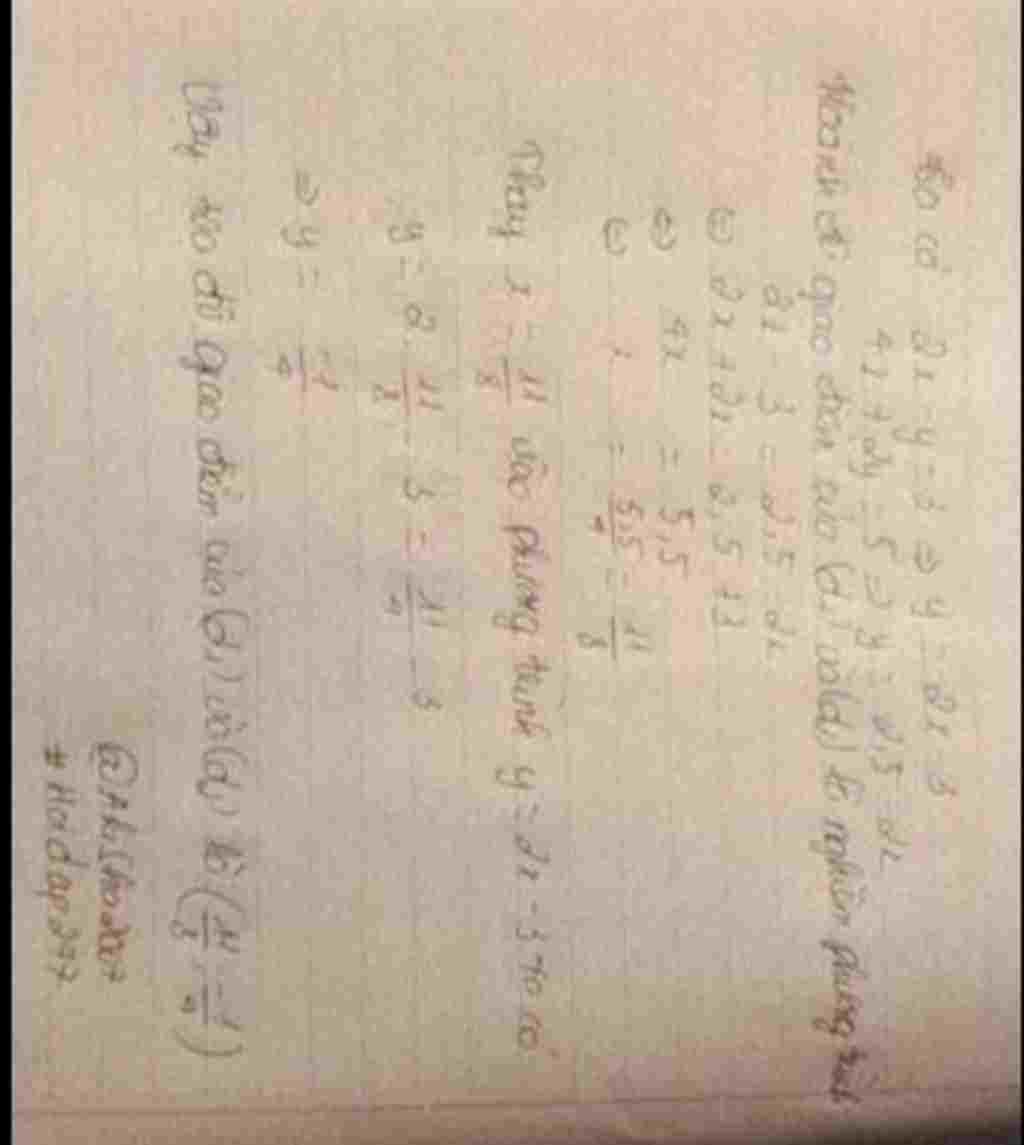 Ta có 2x - y = 3 => y = 2x - 3
4x + 2y = 5 => y = 2,5 - 2x
Hoành độ giao điểm của (d₁) và (d₂) là nghiệm phương trình
2x - 3 = 2,5 - 2x
⇔ 2x + 2x = 2,5 + 3
⇔ 4x = 5,5
⇔ x = 5,5/4 = 11/8
Thay x = 11/8 vào phương trình y = 2x - 3 ta có
y = 2. 11/8 - 3 = 11/4 - 3
=> y = -1/4
Vậy tọa độ giao điểm của (d₁) và (d₂) là (11/8; -1/4)
#Hoidap247